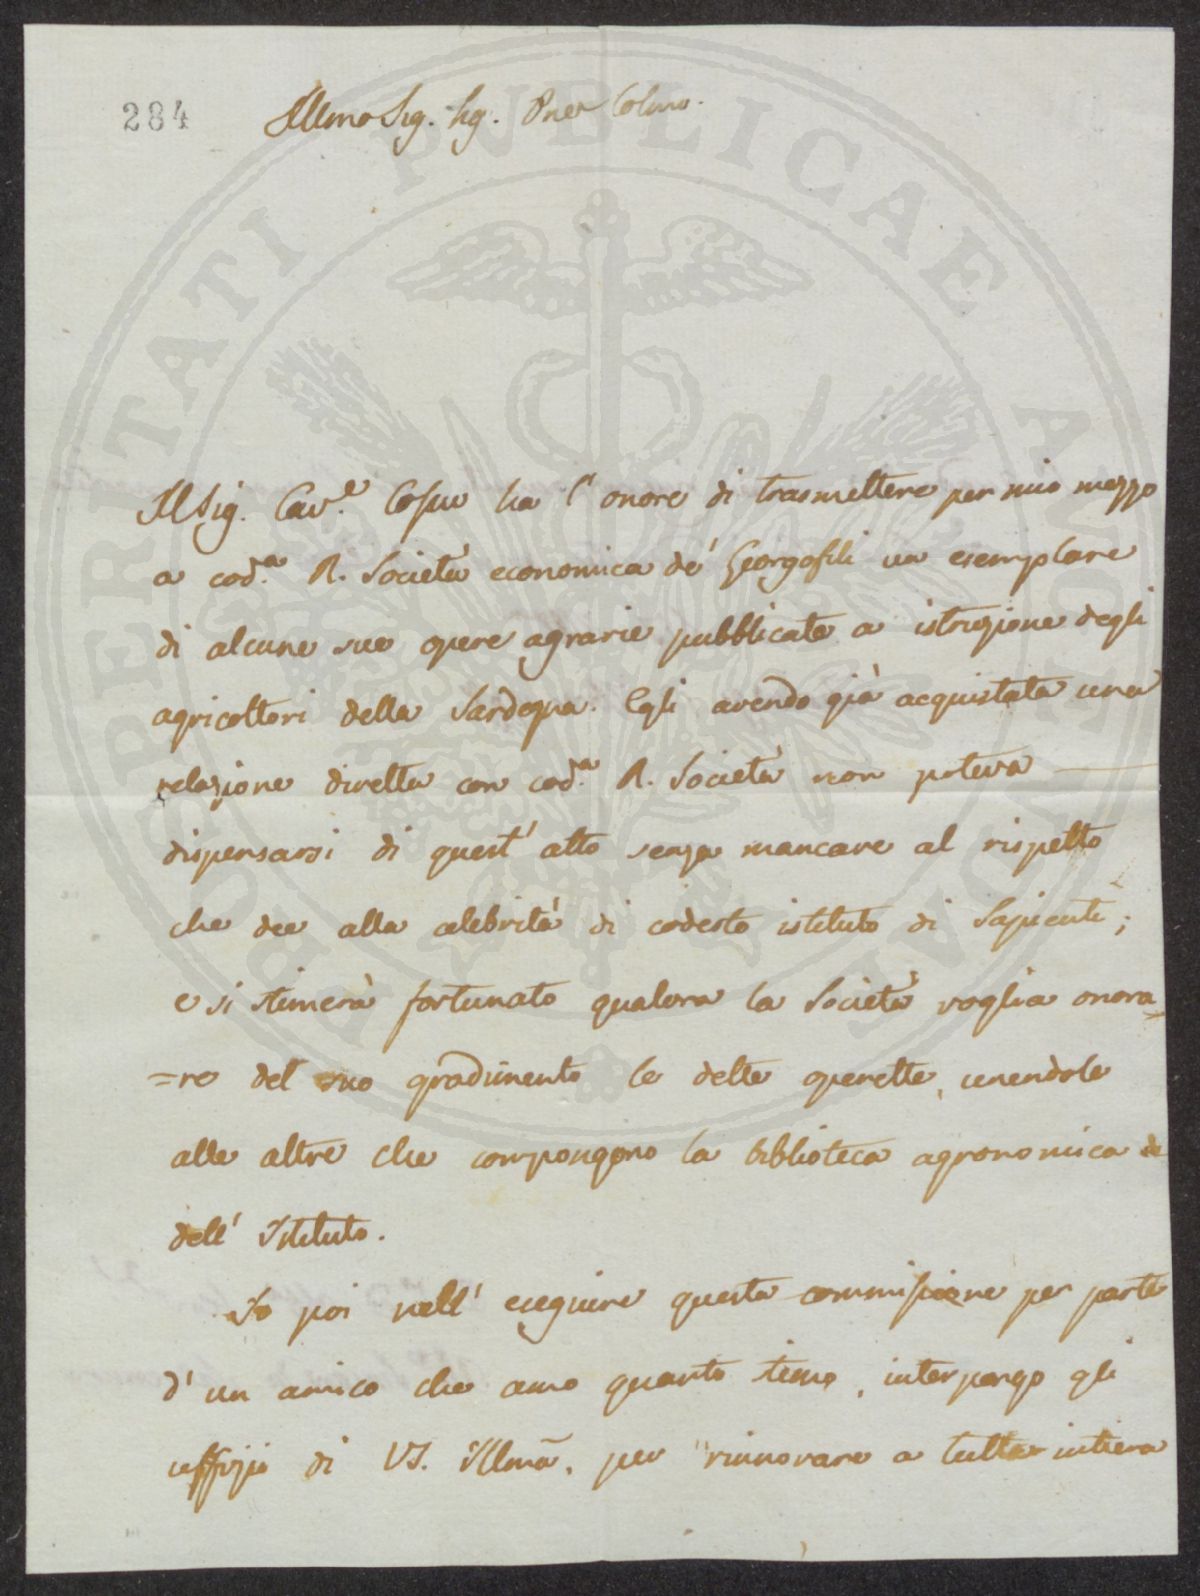 284
Illmo Sig. Sig. Pne Colmo.
PROSPERITATI PUBLICAE AUGENDAE
Il Sig. Cav.e Cossu ha l'onore di trasmettere per mio mezzo
a cod.a R. Società economica de' Georgofili un esemplare
di alcune sue opere agrarie pubblicate a istruzione degli
agricoltori della Sardegna. Egli avendo già acquistata una
relazione diretta con cod.a R. Società non poteva
dispensarsi di quest'atto senza mancare al rispetto
che dee alla celebrità di codesto istituto di Sapienti;
e si stimerà fortunato qualora la Società voglia onora=
=re del suo gradimento le dette operette, unendole
alle altre che compongono la biblioteca agronomica de
dell'Istituto.
Io poi nell'eseguire questa commissione per parte
d'un amico che amo quanto stimo, interpongo gli
uffizj di VS. Illma, per rinnovare a tutta intiera